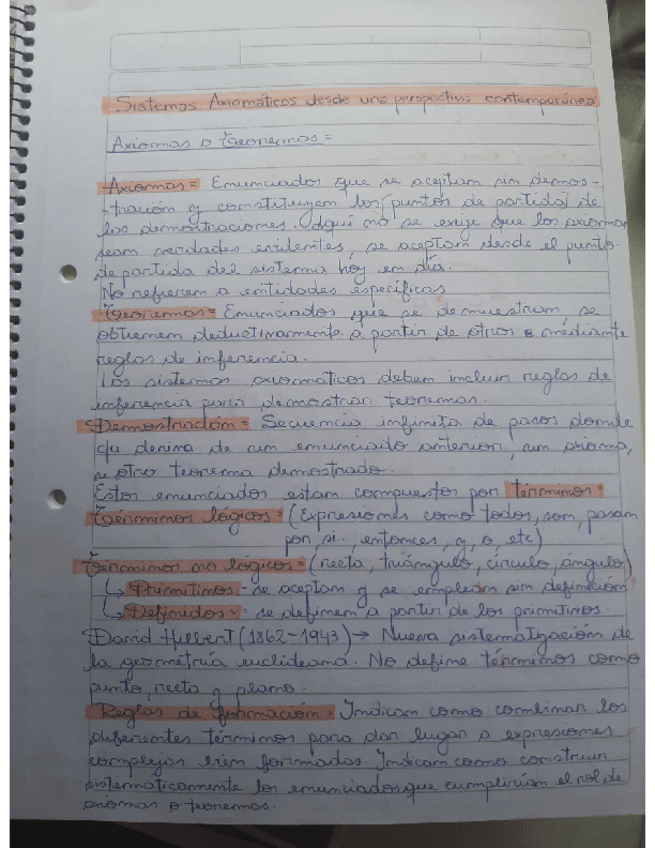 Sistemas Axiomáticos desde una perspectiva contemporánea
Axiomas o teoremas =
Axiomas = Enunciados que se aceptan sin demos-
-tración y constituyen los (puntos de partida) de
las demostraciones. Aquí no se exige que los axiomas
sean verdades evidentes, se aceptan desde el punto
de partida del sistema hoy en día.
No refieren a entidades específicas
Teoremas = Enunciados que se demuestran, se
obtienen deductivamente a partir de otros mediante
reglas de inferencia.
Los sistemas axiomáticos deben incluir reglas de
inferencia para demostrar teoremas.
Demostración = Secuencia infinita de pasos donde
c/u deriva de un enunciado anterior, un axioma,
u otro teorema demostrado.
Estos enunciados estan compuestos por términos =
Términos lógicos = (Expresiones como todos, son, pasan
por, si... entonces, y, o, etc)
Términos no lógicos = (recta, triángulo, círculo, ángulo)
↳ Primitivos - se aceptan y se emplean sin definición
↳ Definidos = se definen a partir de los primitivos.
David Hilbert (1862-1943) → Nueva sistematización de
la geometría euclideana. No define términos como
punto, recta y plano.
Reglas de formación = Indican como combinar los
diferentes términos para dar lugar a expresiones
complejas bien formadas. Indican como construir
sistemáticamente los enunciados que cumplirían el rol de
axiomas o teoremas.